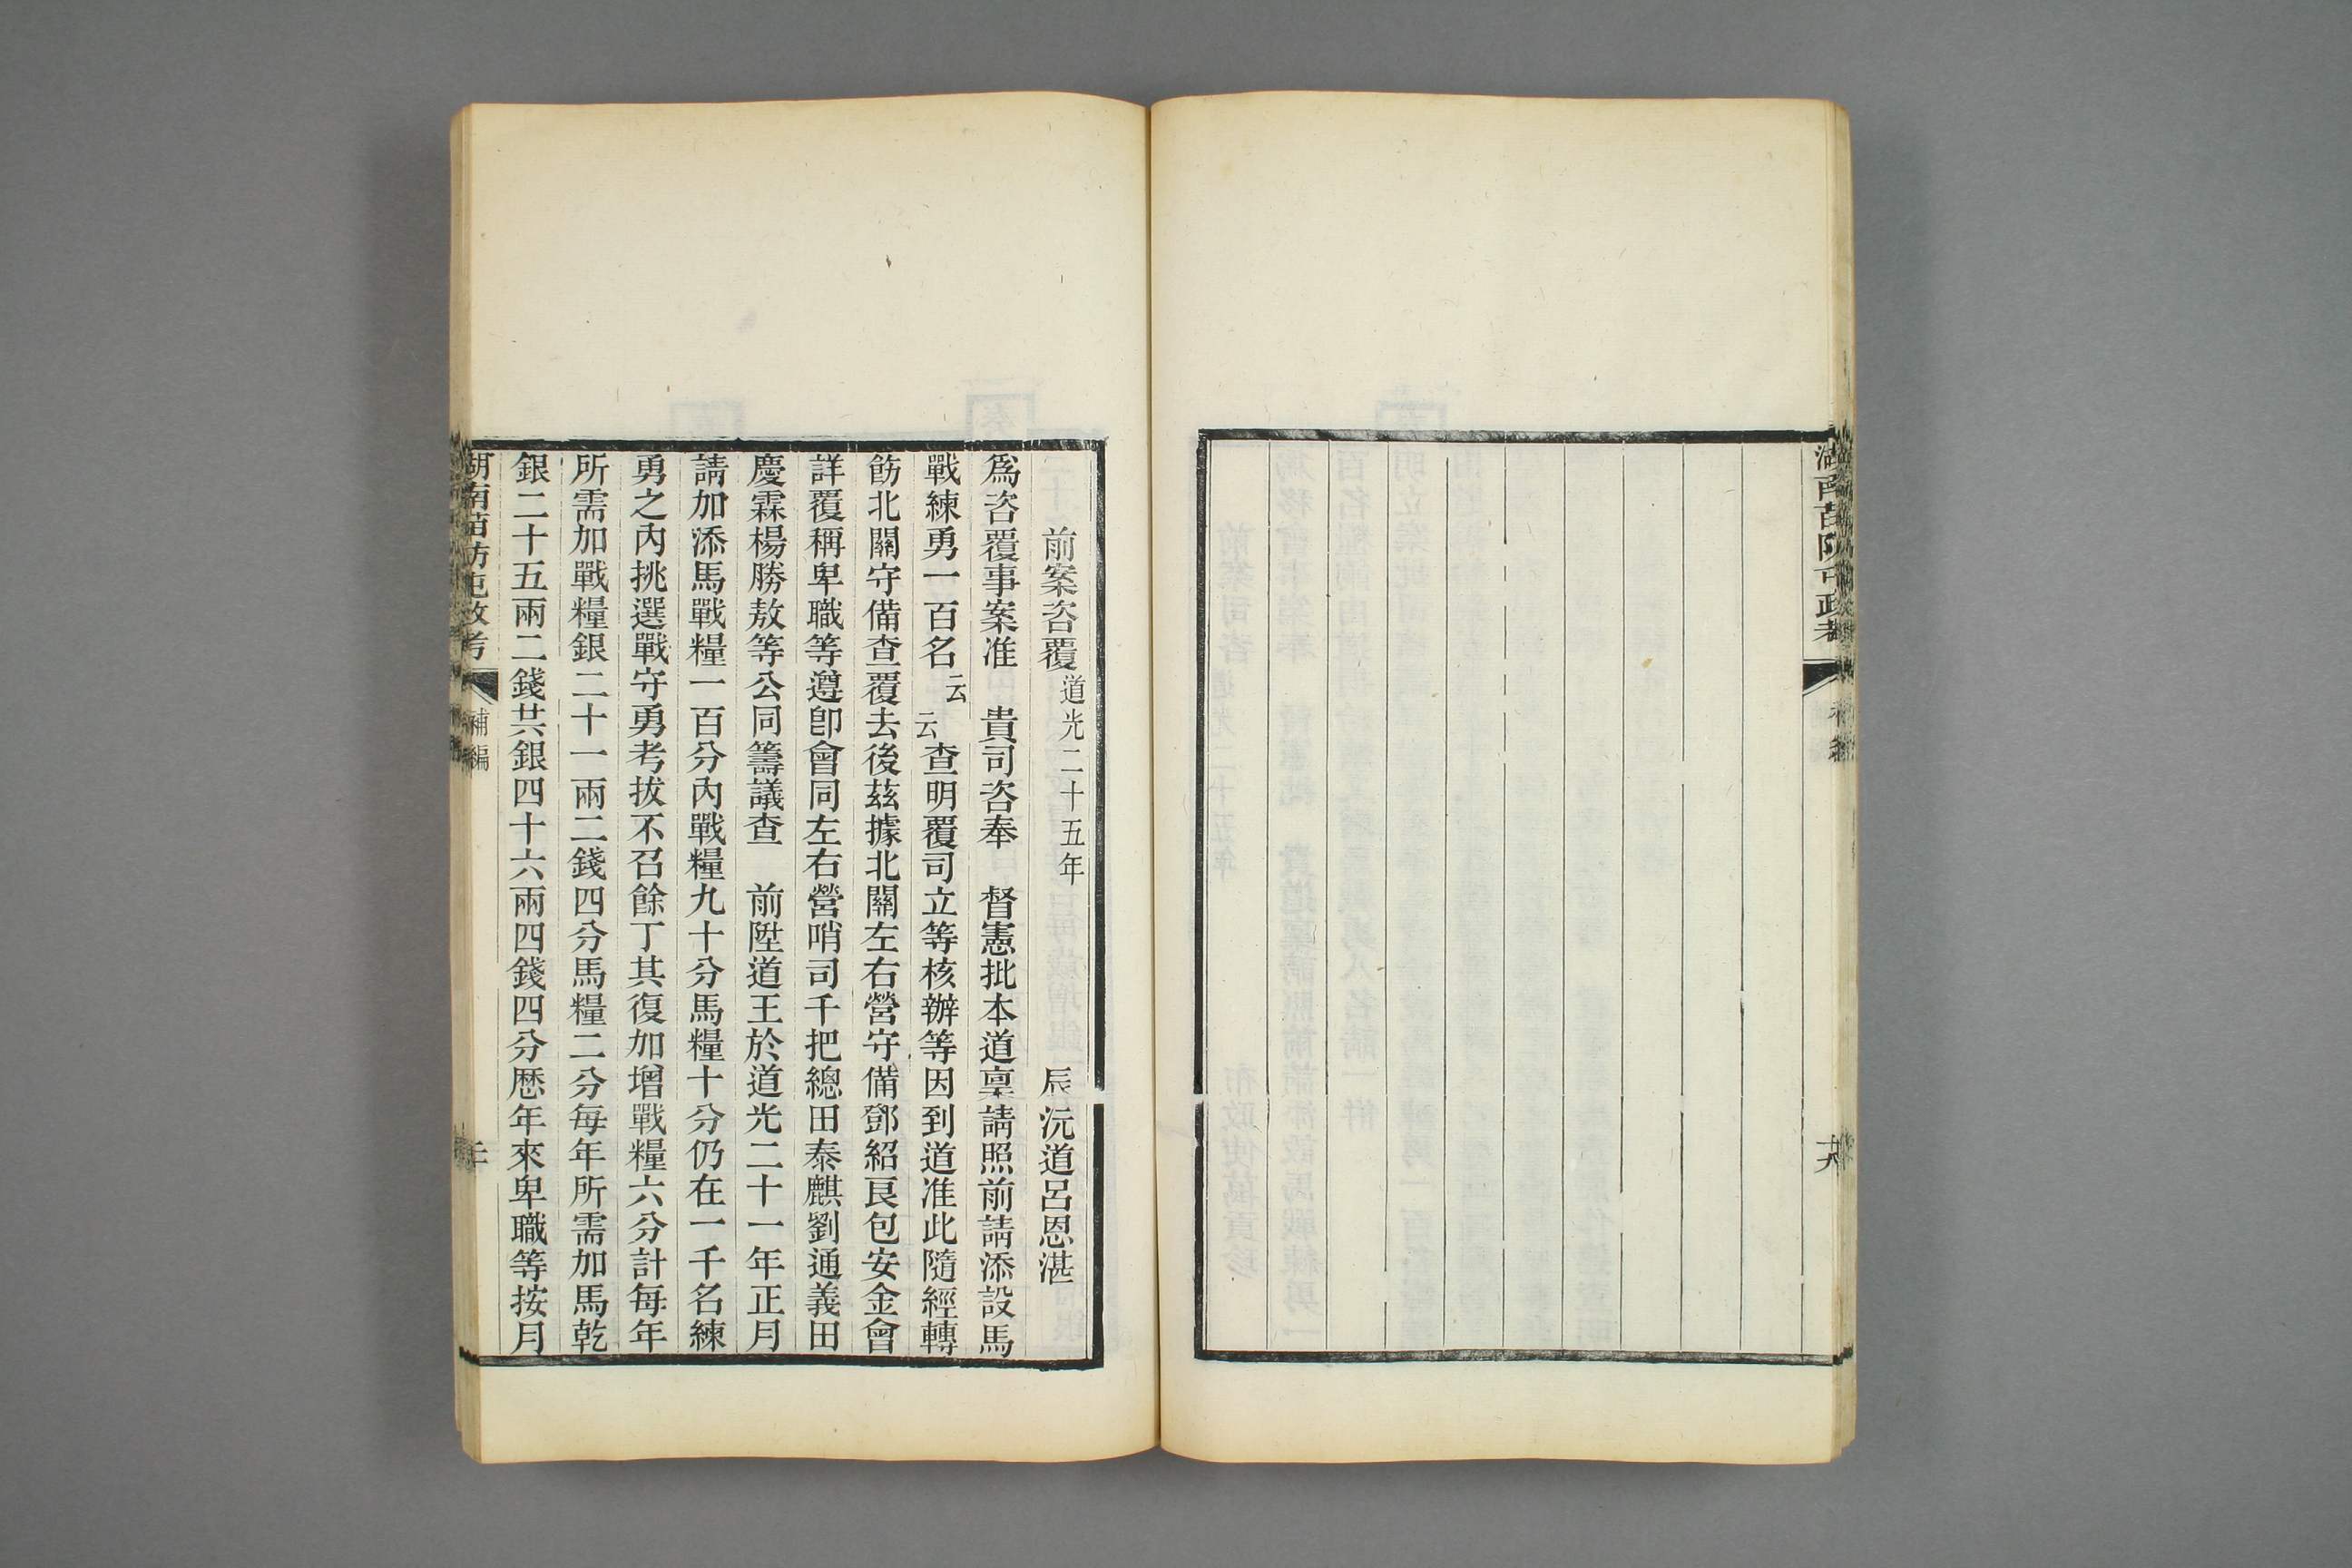 湖南苗防屯政考
補編
前案咨覆道光二十五年 辰沅道呂恩湛
爲咨覆事案准 貴司咨奉 督憲批本道稟請照前請添設馬
戰練勇一百名云云查明覆司立等核辦等因到道准此隨經轉
飭北關守備查覆去後茲據北關左右營守備鄧紹良包安金會
詳覆稱卑職等遵卽會同左右營哨司千把總田泰麒劉通義田
慶霖楊勝敖等公同籌議查 前陞道王於道光二十一年正月
請加添馬戰糧一百分內戰糧九十分馬糧十分仍在一千名練
勇之內挑選戰守勇考拔不召餘丁其復加增戰糧六分計每年
所需加戰糧銀二十一兩二錢四分馬糧二分每年所需加馬乾
銀二十五兩二錢共銀四十六兩四錢四分歷年來卑職等按月
湖南苗防屯政考
補編